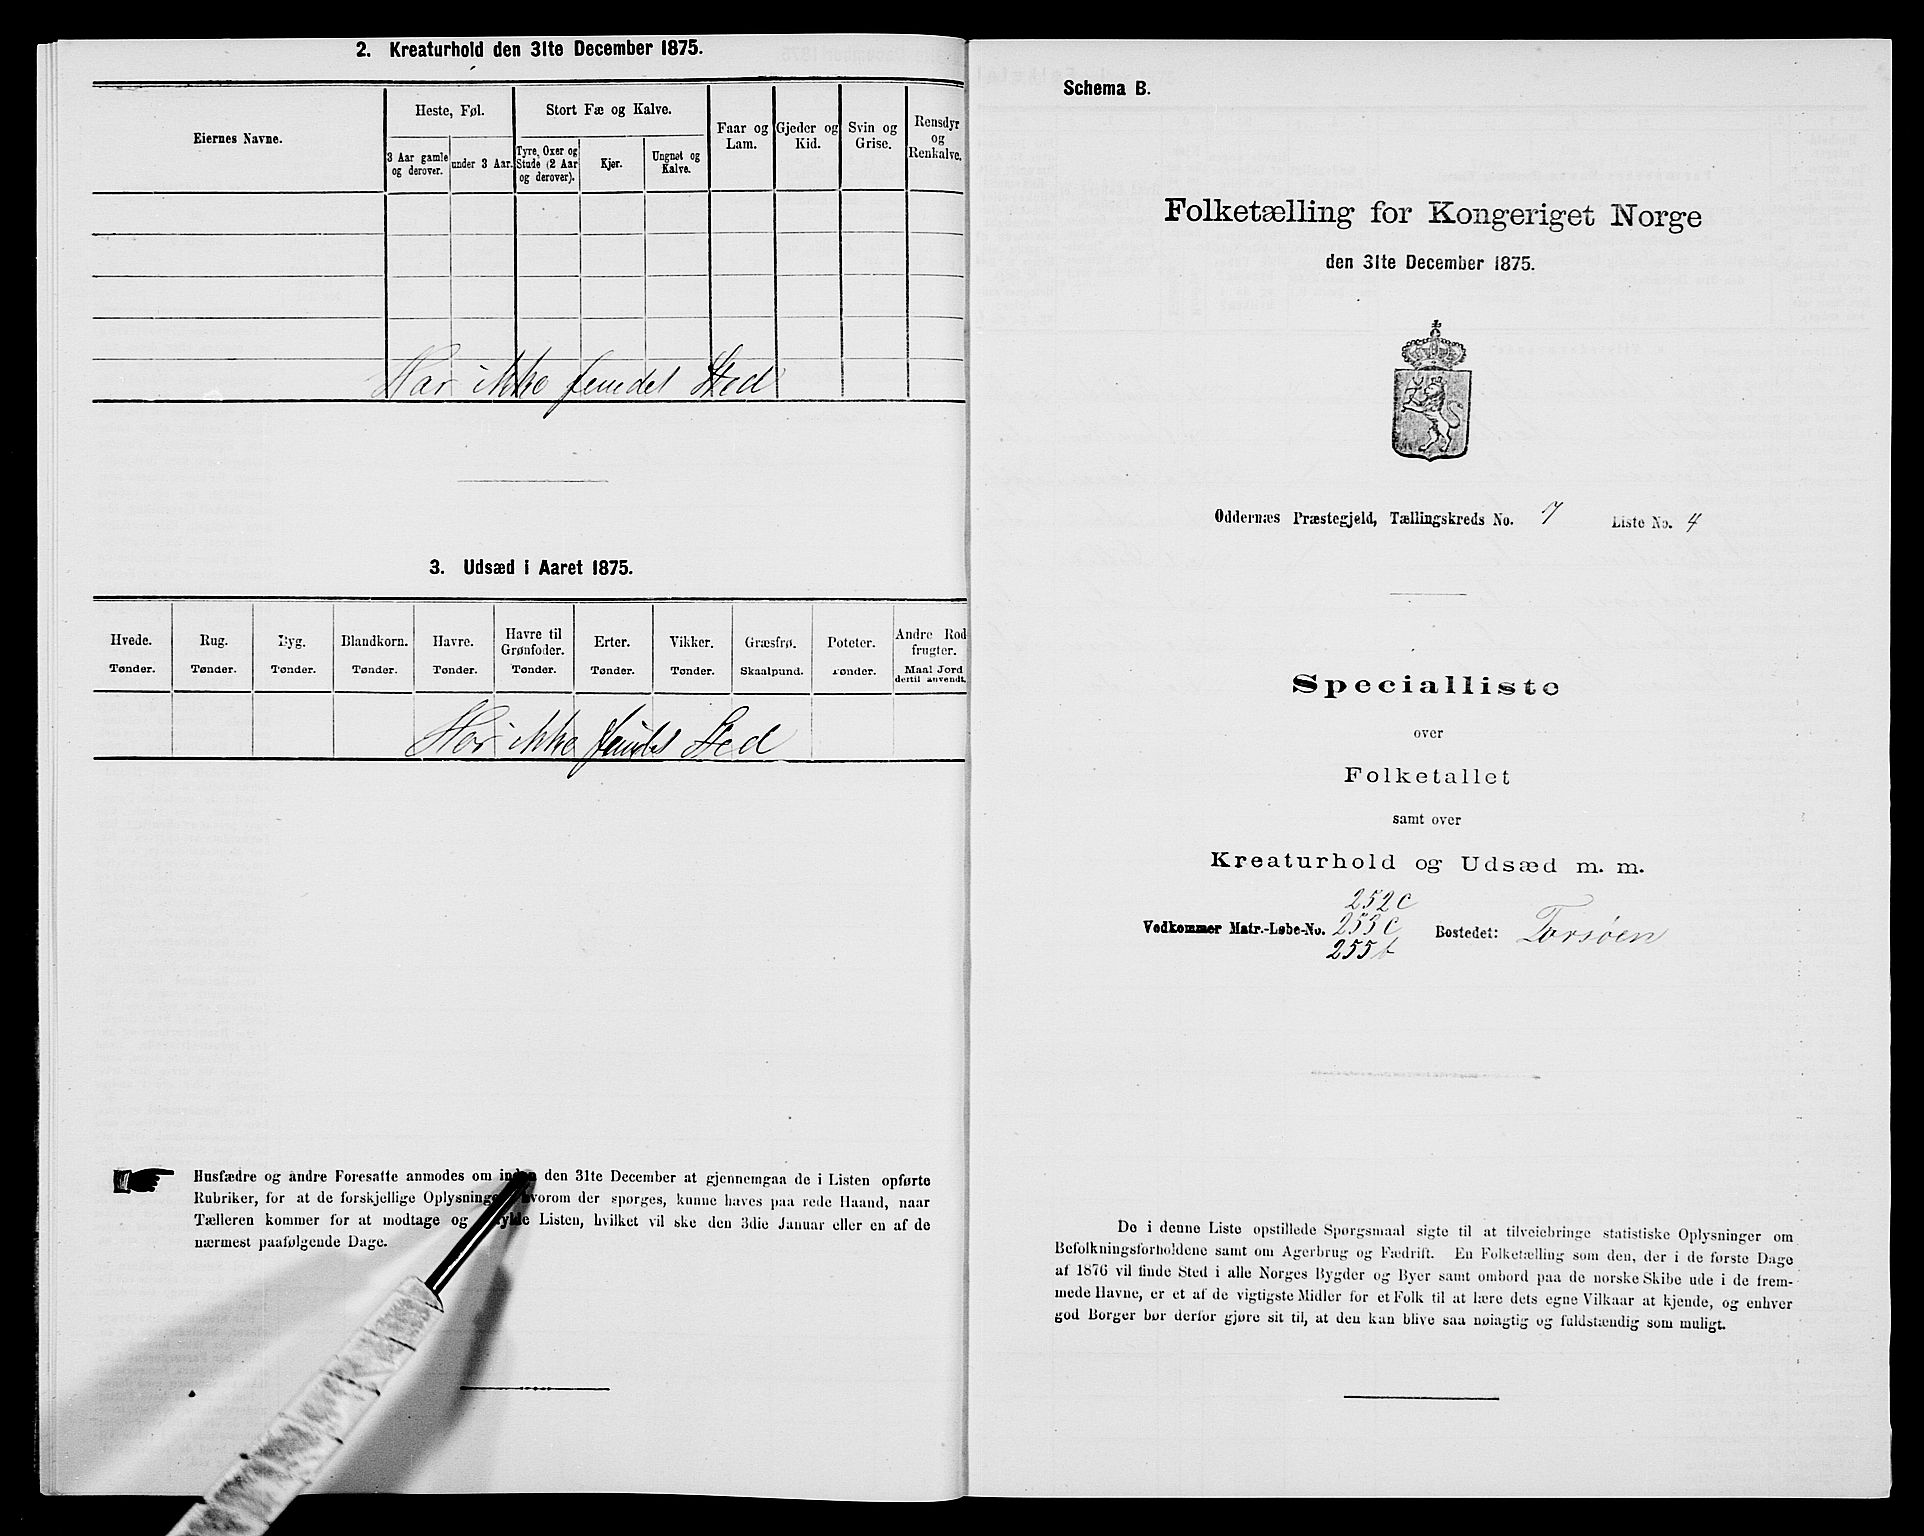 2. Kreaturhold den 31te December 1875.
Eiernes Navne.
Heste, Føl.
3 Aar gamle og derover.
under 3 Aar.
Stort Fæ og Kalve.
Tyre, Oxer og Stude (2 Aar og derover).
Kjør.
Ungnøt og Kalve.
Faar og Lam.
Gjeder og Kid.
Svin og Grise.
Rensdyr og Renkalve.
Har ikke fundet Sted
3. Udsæd i Aaret 1875.
Hvede. Tønder.
Rug. Tønder.
Byg. Tønder.
Blandkorn. Tønder.
Havre. Tønder.
Havre til Grønfoder. Tønder.
Erter. Tønder.
Vikker. Tønder.
Græsfrø. Skaalpund.
Poteter. Tønder.
Andre Rodfrugter. Maal Jord dertil anvendt.
Har ikke fundet Sted
Husfædre og andre Foresatte anmodes om inden den 31te December at gjennemgaa de i Listen opførte
Rubriker, for at de forskjellige Oplysninger, hvorom der spørges, kunne haves paa rede Haand, naar
Tælleren kommer for at modtage og udfylde Listen, hvilket vil ske den 3die Januar eller en af de
nærmest paafølgende Dage.
Schema B.
Folketælling for Kongeriget Norge
den 31te December 1875.
Oddernæs Præstegjeld, Tællingskreds No. 7 Liste No. 4
Specialliste
over
Folketallet
samt over
Kreaturhold og Udsæd m. m.
252c
Vedkommer Matr.-Løbe-No. 253c Bostedet: Torsøen
255b
De i denne Liste opstillede Spørgsmaal sigte til at tilveiebringe statistiske Oplysninger om
Befolkningsforholdene samt om Agerbrug og Fædrift. En Folketælling som den, der i de første Dage
af 1876 vil finde Sted i alle Norges Bygder og Byer samt ombord paa de norske Skibe ude i de frem-
mede Havne, er et af de vigtigste Midler for et Folk til at lære dets egne Vilkaar at kjende, og enhver
god Borger bør derfor gjøre sit til, at den kan blive saa nøiagtig og fuldstændig som muligt.